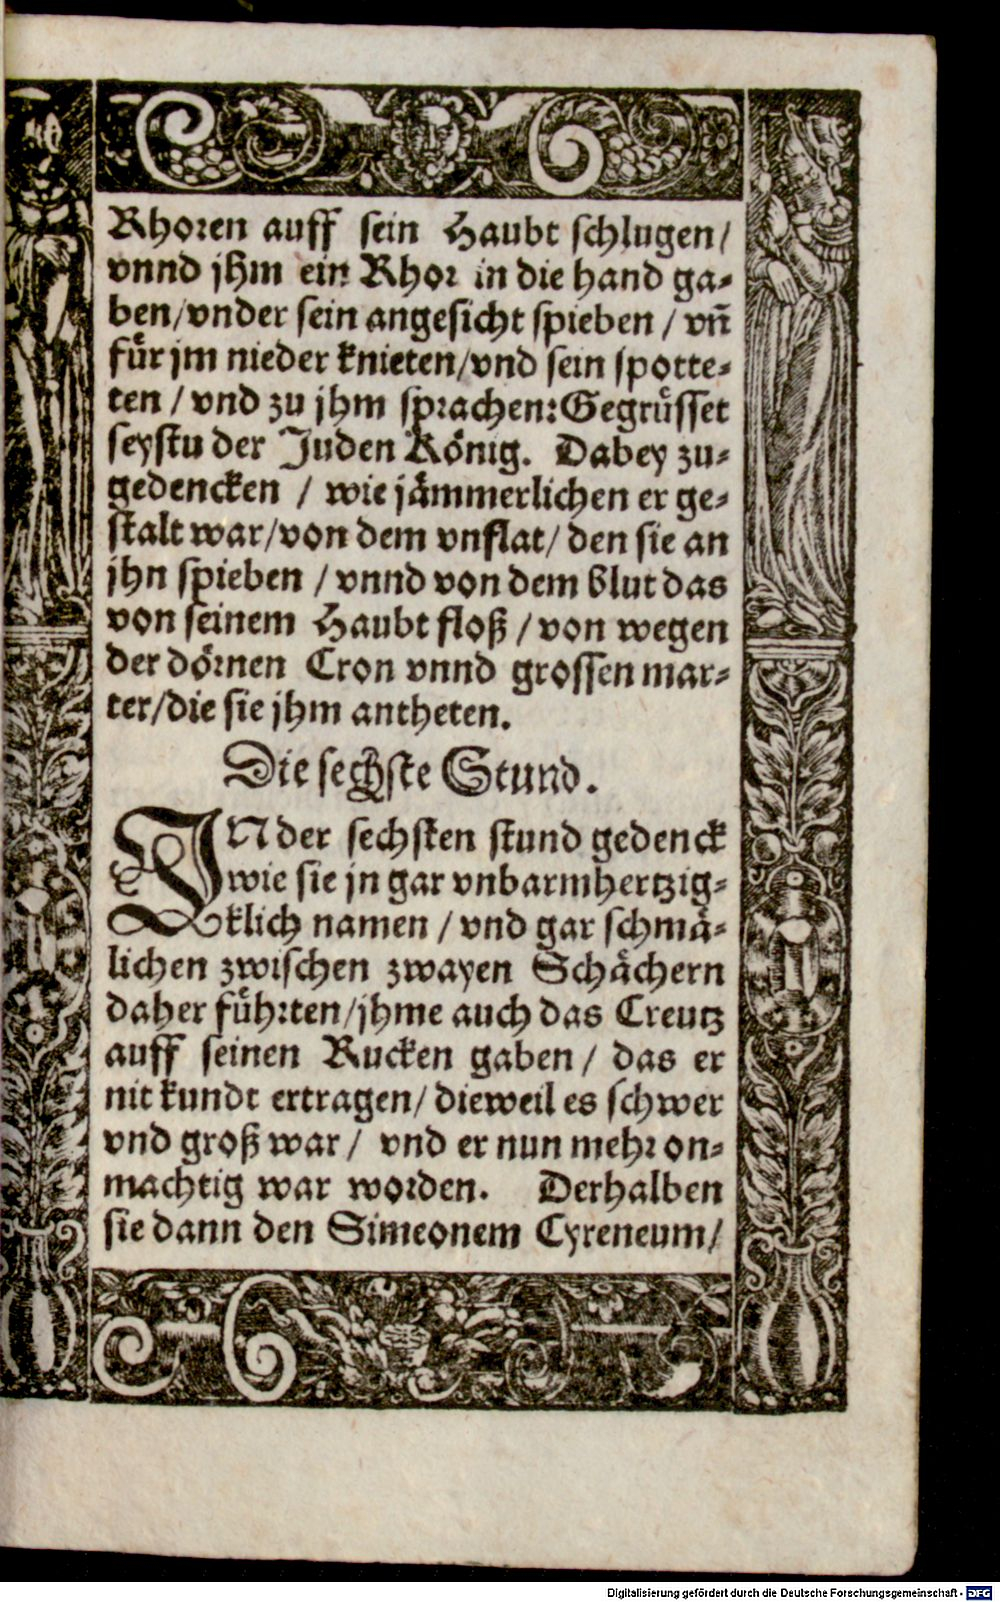 Rhoren auff sein Haubt schlugen/
vnnd jhm ein Rhor in die hand ga-
ben/vnder sein angesicht spieben / vn̄
fuͤr jm nieder knieten/vnd sein spotte-
ten / vnd zu jhm sprachen: Gegruͤsset
seystu der Juden Koͤnig. Dabey zu-
gedencken / wie jaͤmmerlichen er ge-
stalt war/von dem vnflat/ den sie an
jhn spieben / vnnd von dem blut das
von seinem Haubt floß / von wegen
der doͤrnen Cron vnnd grossen mar-
ter/die sie jhm antheten.
Die sechste Stund.
IN der sechsten stund gedenck
wie sie jn gar vnbarmhertzig-
klich namen / vnd gar schmaͤ-
lichen zwischen zwayen Schaͤchern
daher fuͤhrten/jhme auch das Creutz
auff seinen Rucken gaben/ das er
nit kundt ertragen/ dieweil es schwer
vnd groß war/ vnd er nun mehr on-
machtig war worden. Derhalben
sie dann den Simeonem Cyreneum/
Digitalisierung gefördert durch die Deutsche Forschungsgemeinschaft - DFG